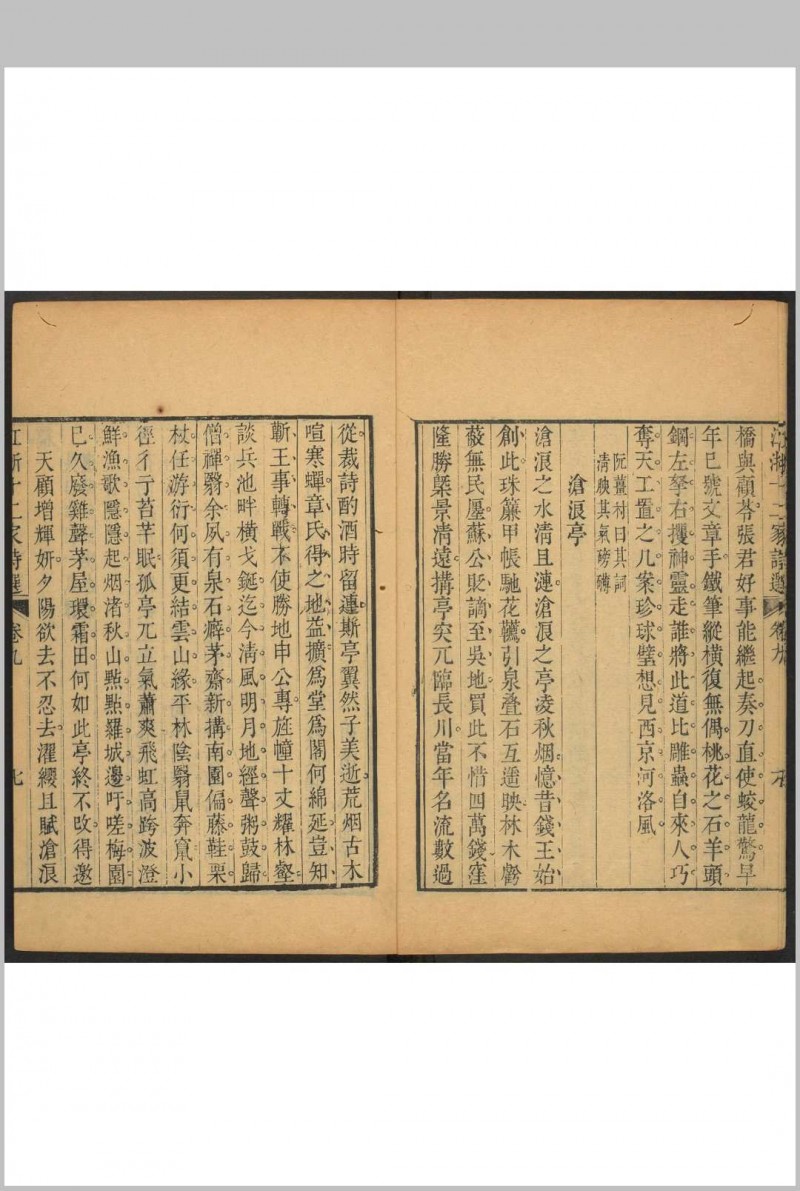 江浙十二家詩選 卷九
橋與顧苓張君好事能繼起奏刀直使蛟龍驚早
年已號文章手鐵筆縱橫復無偶桃花之石羊頭
鋼左拏右攫神靈走誰將此道比雕蟲自來人巧
奪天工置之几案珍球璧想見西京河洛風
阮薑村曰其詞
清腴其氣磅礴
滄浪亭
滄浪之水清且漣滄浪之亭凌秋烟憶昔錢王始
創此珠簾甲帳馳花韉引泉疊石互遥映林木鬱
蔽無民廛蘇公貶謫至吳地買此不惜四萬錢窪
隆勝槩景清遠搆亭突兀臨長川當年名流數過
從裁詩酌酒時留連斯亭翼然子美逝荒烟古木
喧寒蟬章氏得之地益擴爲堂爲閣何綿延豈知
蘄王事轉戰不使勝地申公專旌幢十丈耀林壑
談兵池畔橫戈鋋迄今清風明月地經聲粥鼓歸
僧禪翳余夙有泉石癖茅齋新搆南園偏藤鞋栗
杖任游衍何須更結雲山緣平林陰翳鼠奔竄小
徑彳亍苔芊眠孤亭兀立氣蕭爽飛虹高跨波澄
鮮漁歌隱隱起烟渚秋山㸃㸃羅城邊吁嗟梅園
已久廢雞聲茅屋環霜田何如此亭終不改得邀
天顧增輝妍夕陽欲去不忍去濯纓且賦滄浪
江浙十二家詩選 卷九 七